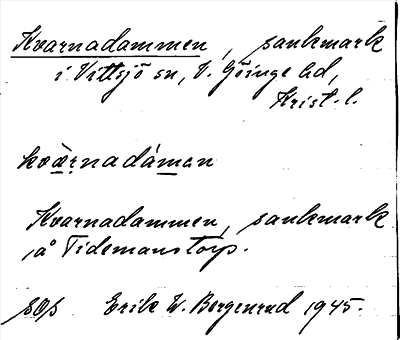 Kvarnadammen, sankmark
i Vittsjö sn, V. Göinge hd,
Krist. l.
kvæ̀rnadáman
Kvarnadammen, sankmark
å Tidemanstorp.
Erik W. Bergenrud 1945.